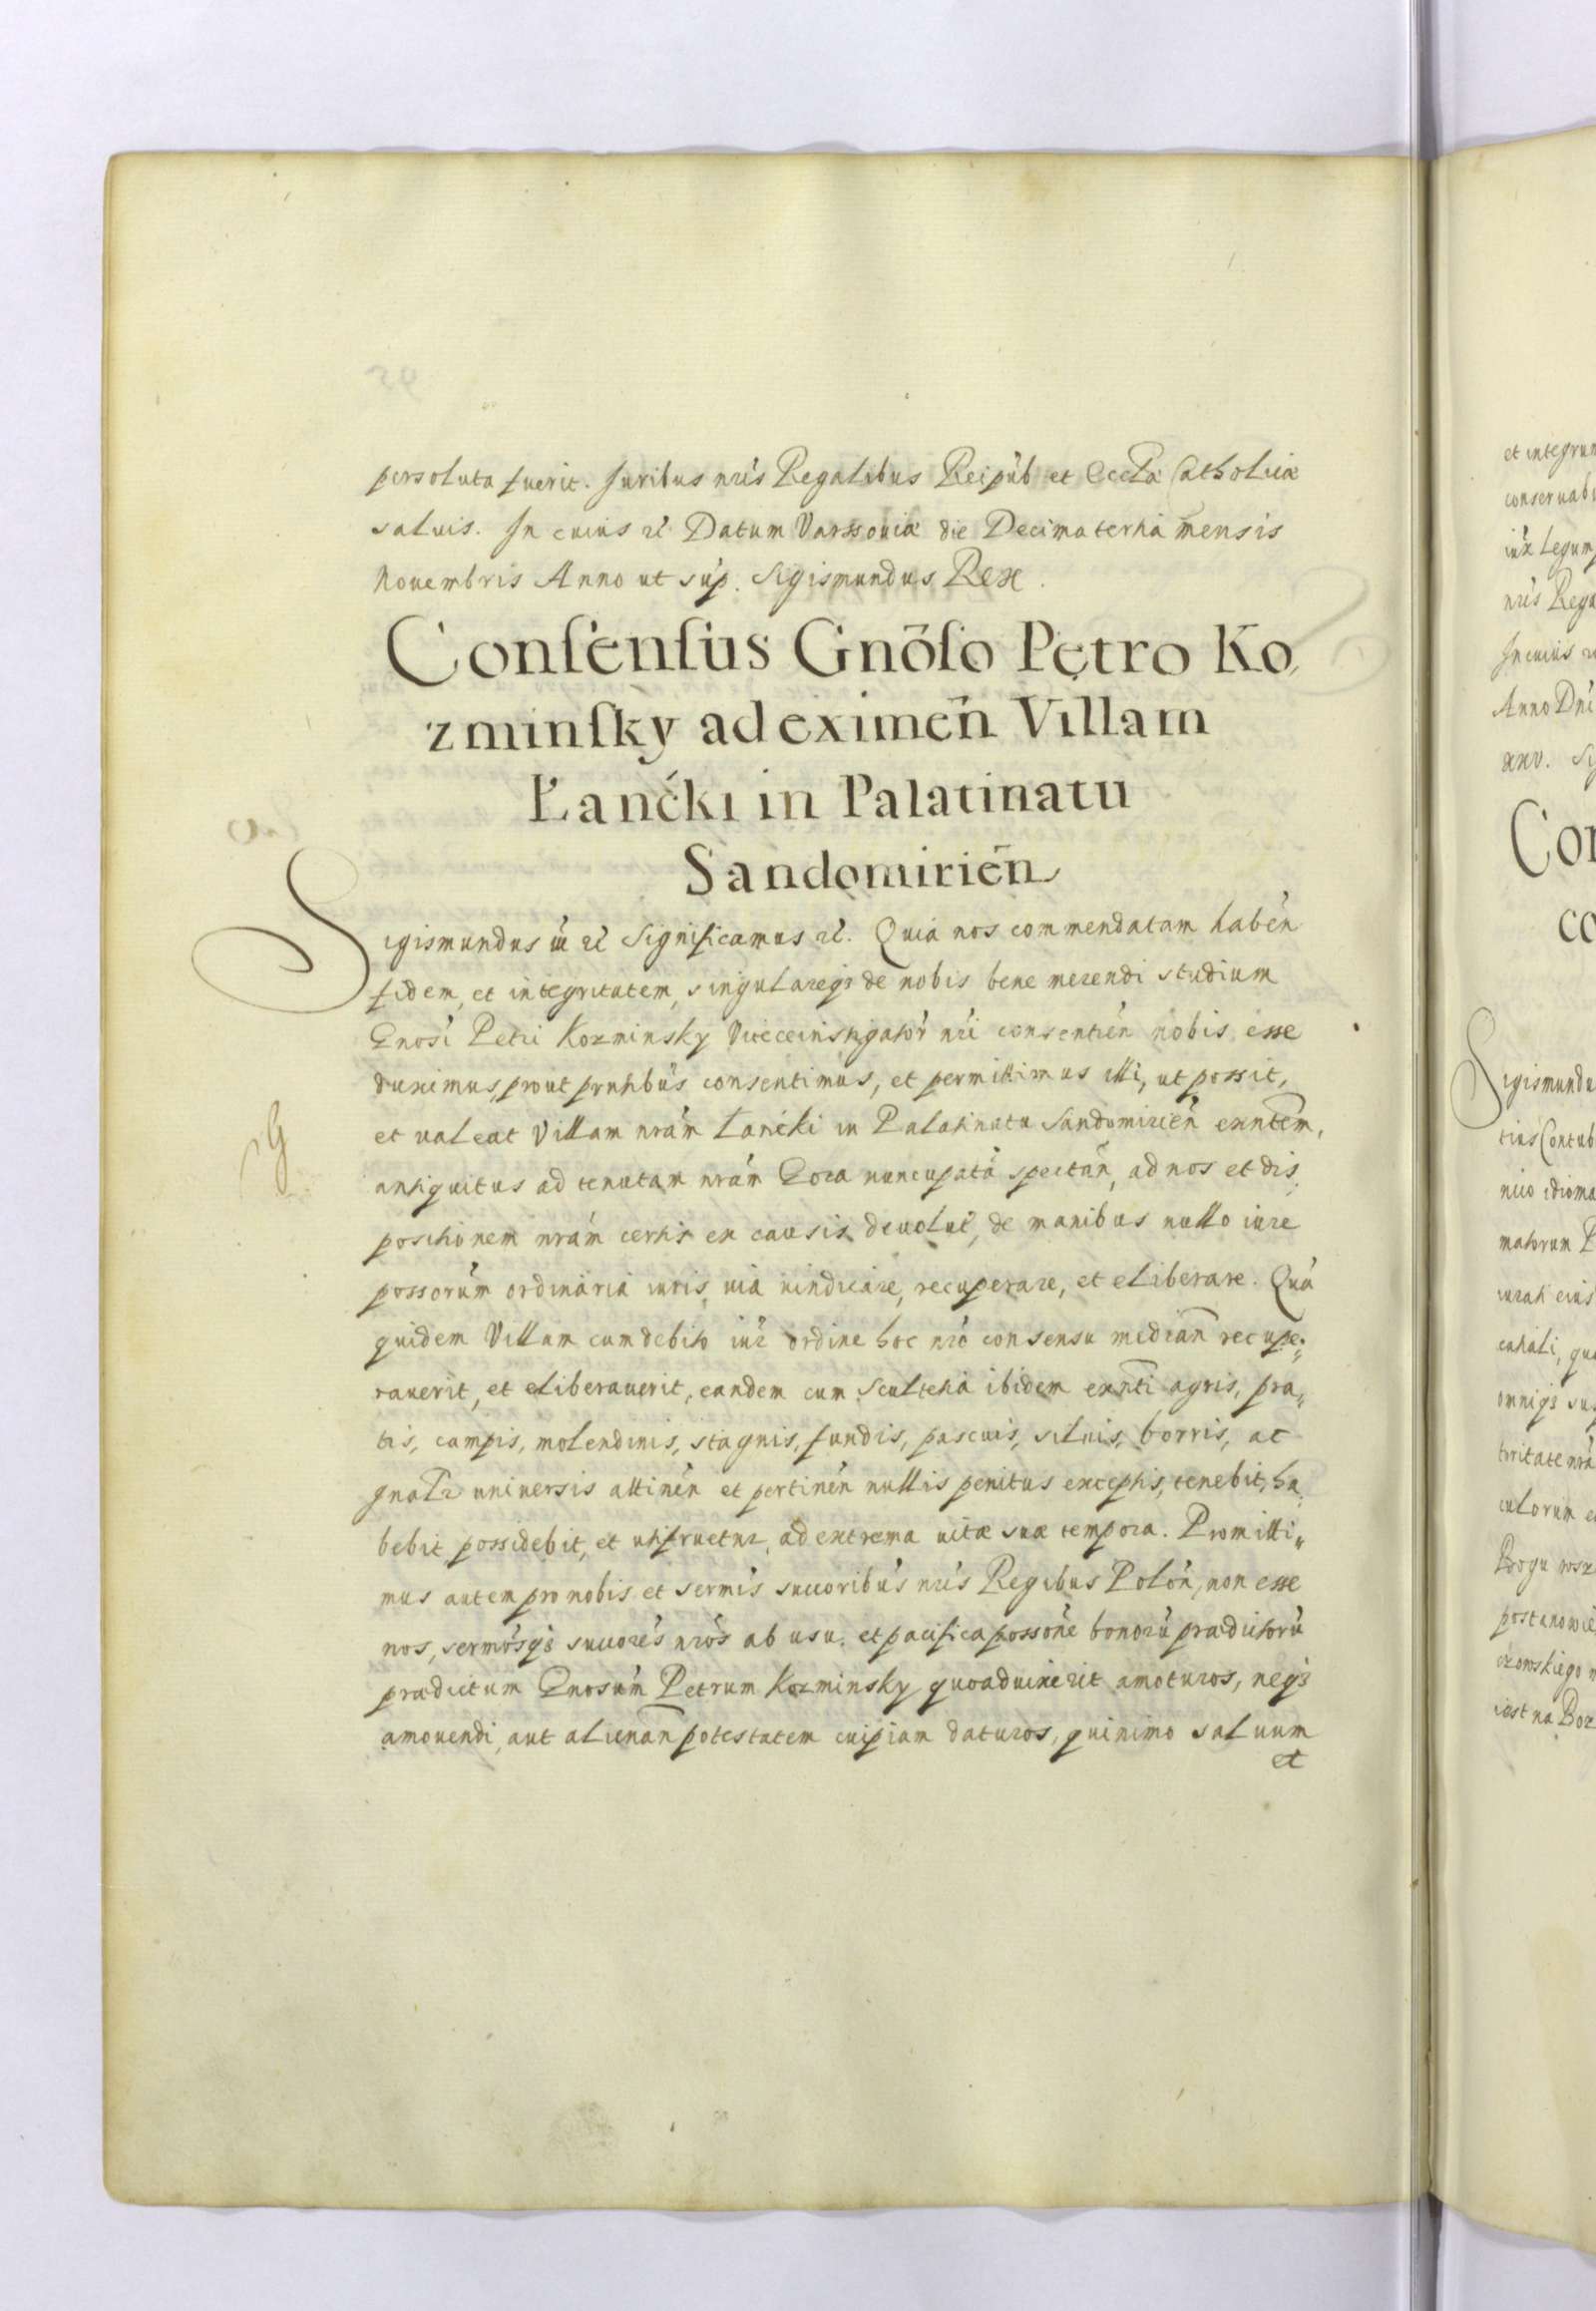 persoluta fuerit. Juribus nris Regalibus Reipub et Eccla Catholica
saluis. In cuius rei Datum Varssouiæ die Decimatertia mensis
Nouembris Anno ut sup. Sigismundus Rex.
Consensus Gnōso Petro Ko,
zminsky ad eximeñ Villam
Łancki in Palatinatu
Sandomirień
Sigismundus iii etc Significamus etc. Quia nos commendatam habeń
fidem, et integritatem, singulareqz de nobis bene merendi studium
Gnosi Petri Kozminsky Viceinstigator nri consentień nobis esse
duximus, prout prntibus consentimus, et permittimus illi, ut possit,
et ualeat Villam nram Łancki in Palatinatu Sandomirień exntem,
antiquitus ad tenutam nram Gora nuncupatā spectań, ad nos et dis,
positionem nram certis ex causis deuolut, de manibus nullo iure
possorum ordinaria iuris uia uindicare, recuperare, et eliberare. Quā
quidem Villam cum debito iur ordine hoc nro consensu medrań recupe„
rauerit, et eliberauerit, eandem cum Scultetia ibidem exnti agris, pra„
tis, campis, molendinis, stagnis, fundis, pascuis, siluis, borris, ac
gnalr uniuersis attineń et pertineń nullis penitus exceptis, tenebit, ha,
bebit possidebit, et utifruetur, ad extrema uitæ suæ tempora. Promitti„
mus autem pro nobis et sermis succoribus nris Regibus Poloń, non esse
nos, sermosqz succores nros ab usu. et pacifica possone bonorū prædictorū
prædictum Gnosum Petrum Kozminsky quoaduixerit amoturos, neqz
amouendi, aut alienań potestatem cuipiam daturos, quinimo saluum
et